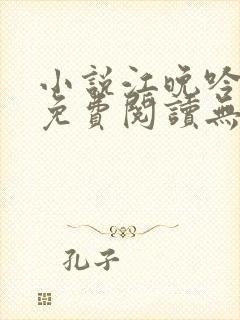 小說江晚吟
免費閱讀無
孔子